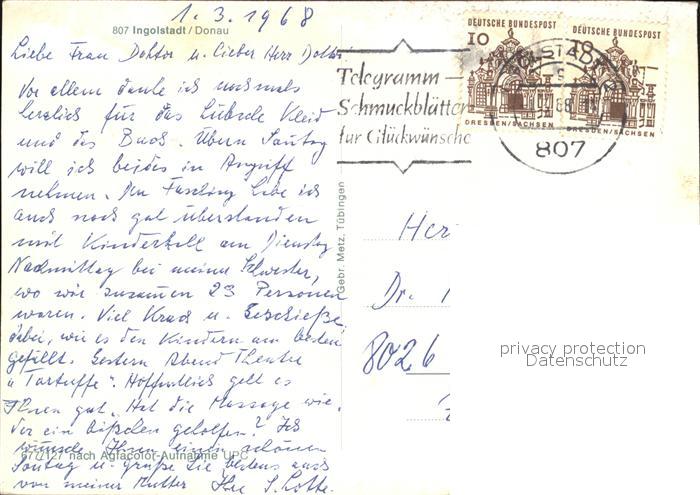 1.3.1968
807 Ingolstadt / Donau
Liebe Frau Doktor u. lieber Herr Doktor
Vor allem danke ich nochmals
herzlich für das hübsche Kleid
und das Buch. Übern Sonntag
will ich beides in Angriff
nehmen. Den Fasching habe ich
auch noch gut überstanden
mit Kinderball am Dienstag
Nachmittag bei meiner Schwester,
wo wir zusammen 23 Personen
waren. Viel Krach u. Geschieße
dabei, wie es den Kindern am besten
gefällt. Gestern Abend Theater
"Tartuffe". Hoffentlich geht es
Ihnen gut. Hat die Massage wie-
der ein bißchen geholfen? Ich
wünsche Ihnen einen schönen
Sonntag u. grüße Sie bestens auch
von meiner Mutter Ihre S. Lotte.
670/127 nach Agfacolor-Aufnahme UPC
Gebr. Metz, Tübingen
Telegramm-
Schmuckblätter
für Glückwünsche
DEUTSCHE BUNDESPOST
10
DRESDEN/SACHSEN
DEUTSCHE BUNDESPOST
10
DRESDEN/SACHSEN
807
Her
Dr.
8026
privacy protection
Datenschutz